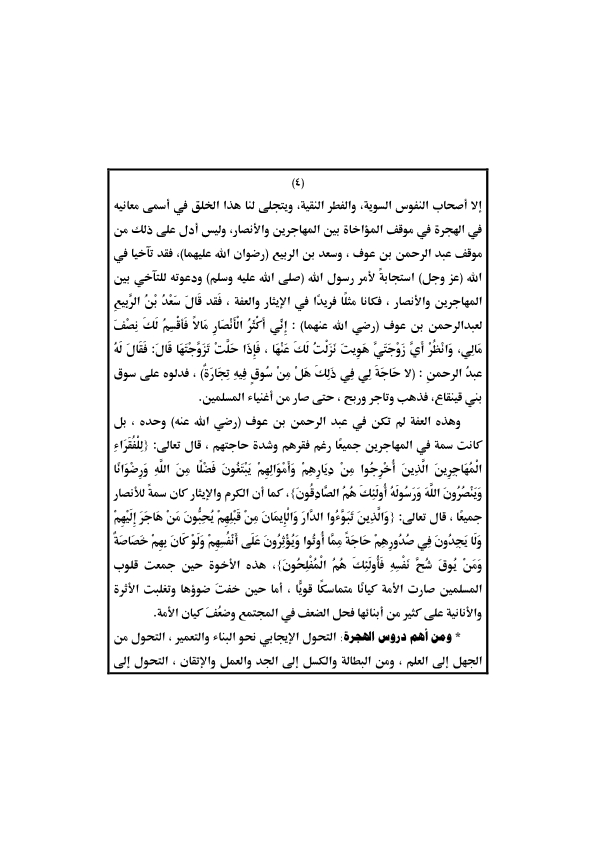 (٤)
إلا أصحاب النفوس السوية، والفطر النقية، ويتجلى لنا هذا الخلق في أسمى معانيه
في الهجرة في موقف المؤاخاة بين المهاجرين والأنصار، وليس أدل على ذلك من
موقف عبد الرحمن بن عوف ، وسعد بن الربيع (رضوان الله عليهما)، فقد تآخيا في
الله (عز وجل) استجابةً لأمر رسول الله (صلى الله عليه وسلم) ودعوته للتآخي بين
المهاجرين والأنصار ، فكانا مثلًا فريدًا في الإيثار والعفة ، فَقد قَالَ سَعْدُ بْنُ الرَّبِيعِ
لعبدالرحمن بن عوف (رضي الله عنهما) : إِنِّي أَكْثَرُ الْأَنْصَارِ مَالاً فَأَقْسِمُ لَكَ نِصْفَ
مَالِي، وَانْظُرْ أَيَّ زَوْجَتَيَّ هَوِيتَ نَزَلْتُ لَكَ عَنْهَا ، فَإِذَا حَلَّتْ تَزَوَّجْتَهَا قَالَ: فَقَالَ لَهُ
عبدُ الرحمنِ : (لا حَاجَةَ لِي فِي ذَلِكَ هَلْ مِنْ سُوقٍ فِيهِ تِجَارَةٌ) ، فدلوه على سوق
بني قينقاع، فذهب وتاجر وربح ، حتى صار من أغنياء المسلمين.
وهذه العفة لم تكن في عبد الرحمن بن عوف (رضي الله عنه) وحده ، بل
كانت سمة في المهاجرين جميعًا رغم فقرهم وشدة حاجتهم ، قال تعالى: {لِلْفُقَرَاءِ
الْمُهَاجِرِينَ الَّذِينَ أُخْرِجُوا مِنْ دِيَارِهِمْ وَأَمْوَالِهِمْ يَبْتَغُونَ فَضْلًا مِنَ اللَّهِ وَرِضْوَانًا
وَيَنْصُرُونَ اللَّهَ وَرَسُولَهُ أُولَئِكَ هُمُ الصَّادِقُونَ}، كما أن الكرم والإيثار كان سمةً للأنصار
جميعًا ، قال تعالى: {وَالَّذِينَ تَبَوَّءُوا الدَّارَ وَالْإِيمَانَ مِنْ قَبْلِهِمْ يُحِبُّونَ مَنْ هَاجَرَ إِلَيْهِمْ
وَلَا يَجِدُونَ فِي صُدُورِهِمْ حَاجَةً مِمَّا أُوتُوا وَيُؤْثِرُونَ عَلَى أَنْفُسِهِمْ وَلَوْ كَانَ بِهِمْ خَصَاصَةٌ
وَمَنْ يُوقَ شُحَّ نَفْسِهِ فَأُولَئِكَ هُمُ الْمُفْلِحُونَ}، هذه الأخوة حين جمعت قلوب
المسلمين صارت الأمة كيانًا متماسكًا قويًّا ، أما حين خفتَ ضوؤها وتغلبت الأثرة
والأنانية على كثير من أبنائها فحل الضعف في المجتمع وضعُفَ كيان الأمة.
* ومن أهم دروس الهجرة: التحول الإيجابي نحو البناء والتعمير ، التحول من
الجهل إلى العلم ، ومن البطالة والكسل إلى الجد والعمل والإتقان ، التحول إلى